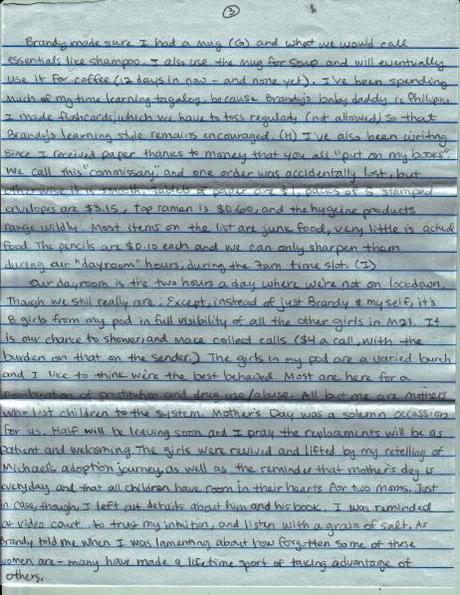 3
Brandy made sure I had a mug (G) and what we would call
essentials like shampoo. I also use the mug for soup and will eventually
use it for coffee (12 days in now - and none yet). I've been spending
much of my time learning tagalog, because Brandy's baby daddy is Philipino.
I made flashcards, which we have to toss regularly (not allowed) so that
Brandy's learning style remains encouraged. (H) I've also been writing
since I received paper thanks to money that you all "put on my books".
We call this "commissary," and one order was accidentally lost, but
otherwise it is smooth. Tablets of paper are $1, packs of 5 stamped
envelopes are $3.15, top ramen is $0.60, and the hygeine products
range wildly. Most items on the list are junk food, very little is actual
food. The pencils are $0.10 each and we can only sharpen them
during our "dayroom" hours, during the 7am time slot. (I)
Our dayroom is the two hours a day where we're not on lockdown.
Though we still really are. Except, instead of just Brandy & myself, it's
8 girls from my pod in full visibility of all the other girls in M21. It
is our chance to shower, and make collect calls ($4 a call, with the
burden on that on the sender.) The girls in my pod are a varied bunch
and I like to think we're the best behaved. Most are here for a
combination of prostitution and drug use/abuse. All but me are mothers
who lost children to the system. Mother's Day was a solemn occassion
for us. Half will be leaving soon and I pray the replacements will be as
patient and welcoming. The girls were revived and lifted by my retelling of
Michael's adoption journey, as well as the reminder that mother's day is
everyday and that all children have room in their hearts for two moms. Just
in case, though, I left out details about him and his book. I was reminded
at video court to trust my intuition, and listen with a grain of salt. As
Brandy told me when I was lamenting about how forgotten some of these
women are - many have made a lifetime sport of taking advantage of
others.